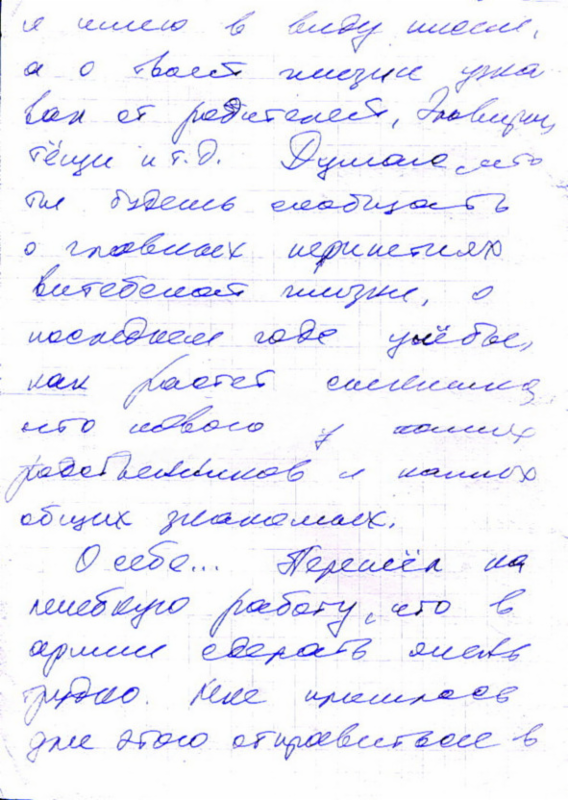 я имею в виду письма,
а о твоей жизни узна
вал от родителей,
тёщи и т.д. Думаю, что
ты будешь сообщать
о главных перипетиях
витебской жизни, о
последнем годе учёбы,
как растет
что нового у наших
родственников и наших
общих знакомых.
О себе... Перешёл на
лечебную работу, что в
армии сделать очень
трудно. Мне пришлось
для этого отправиться в